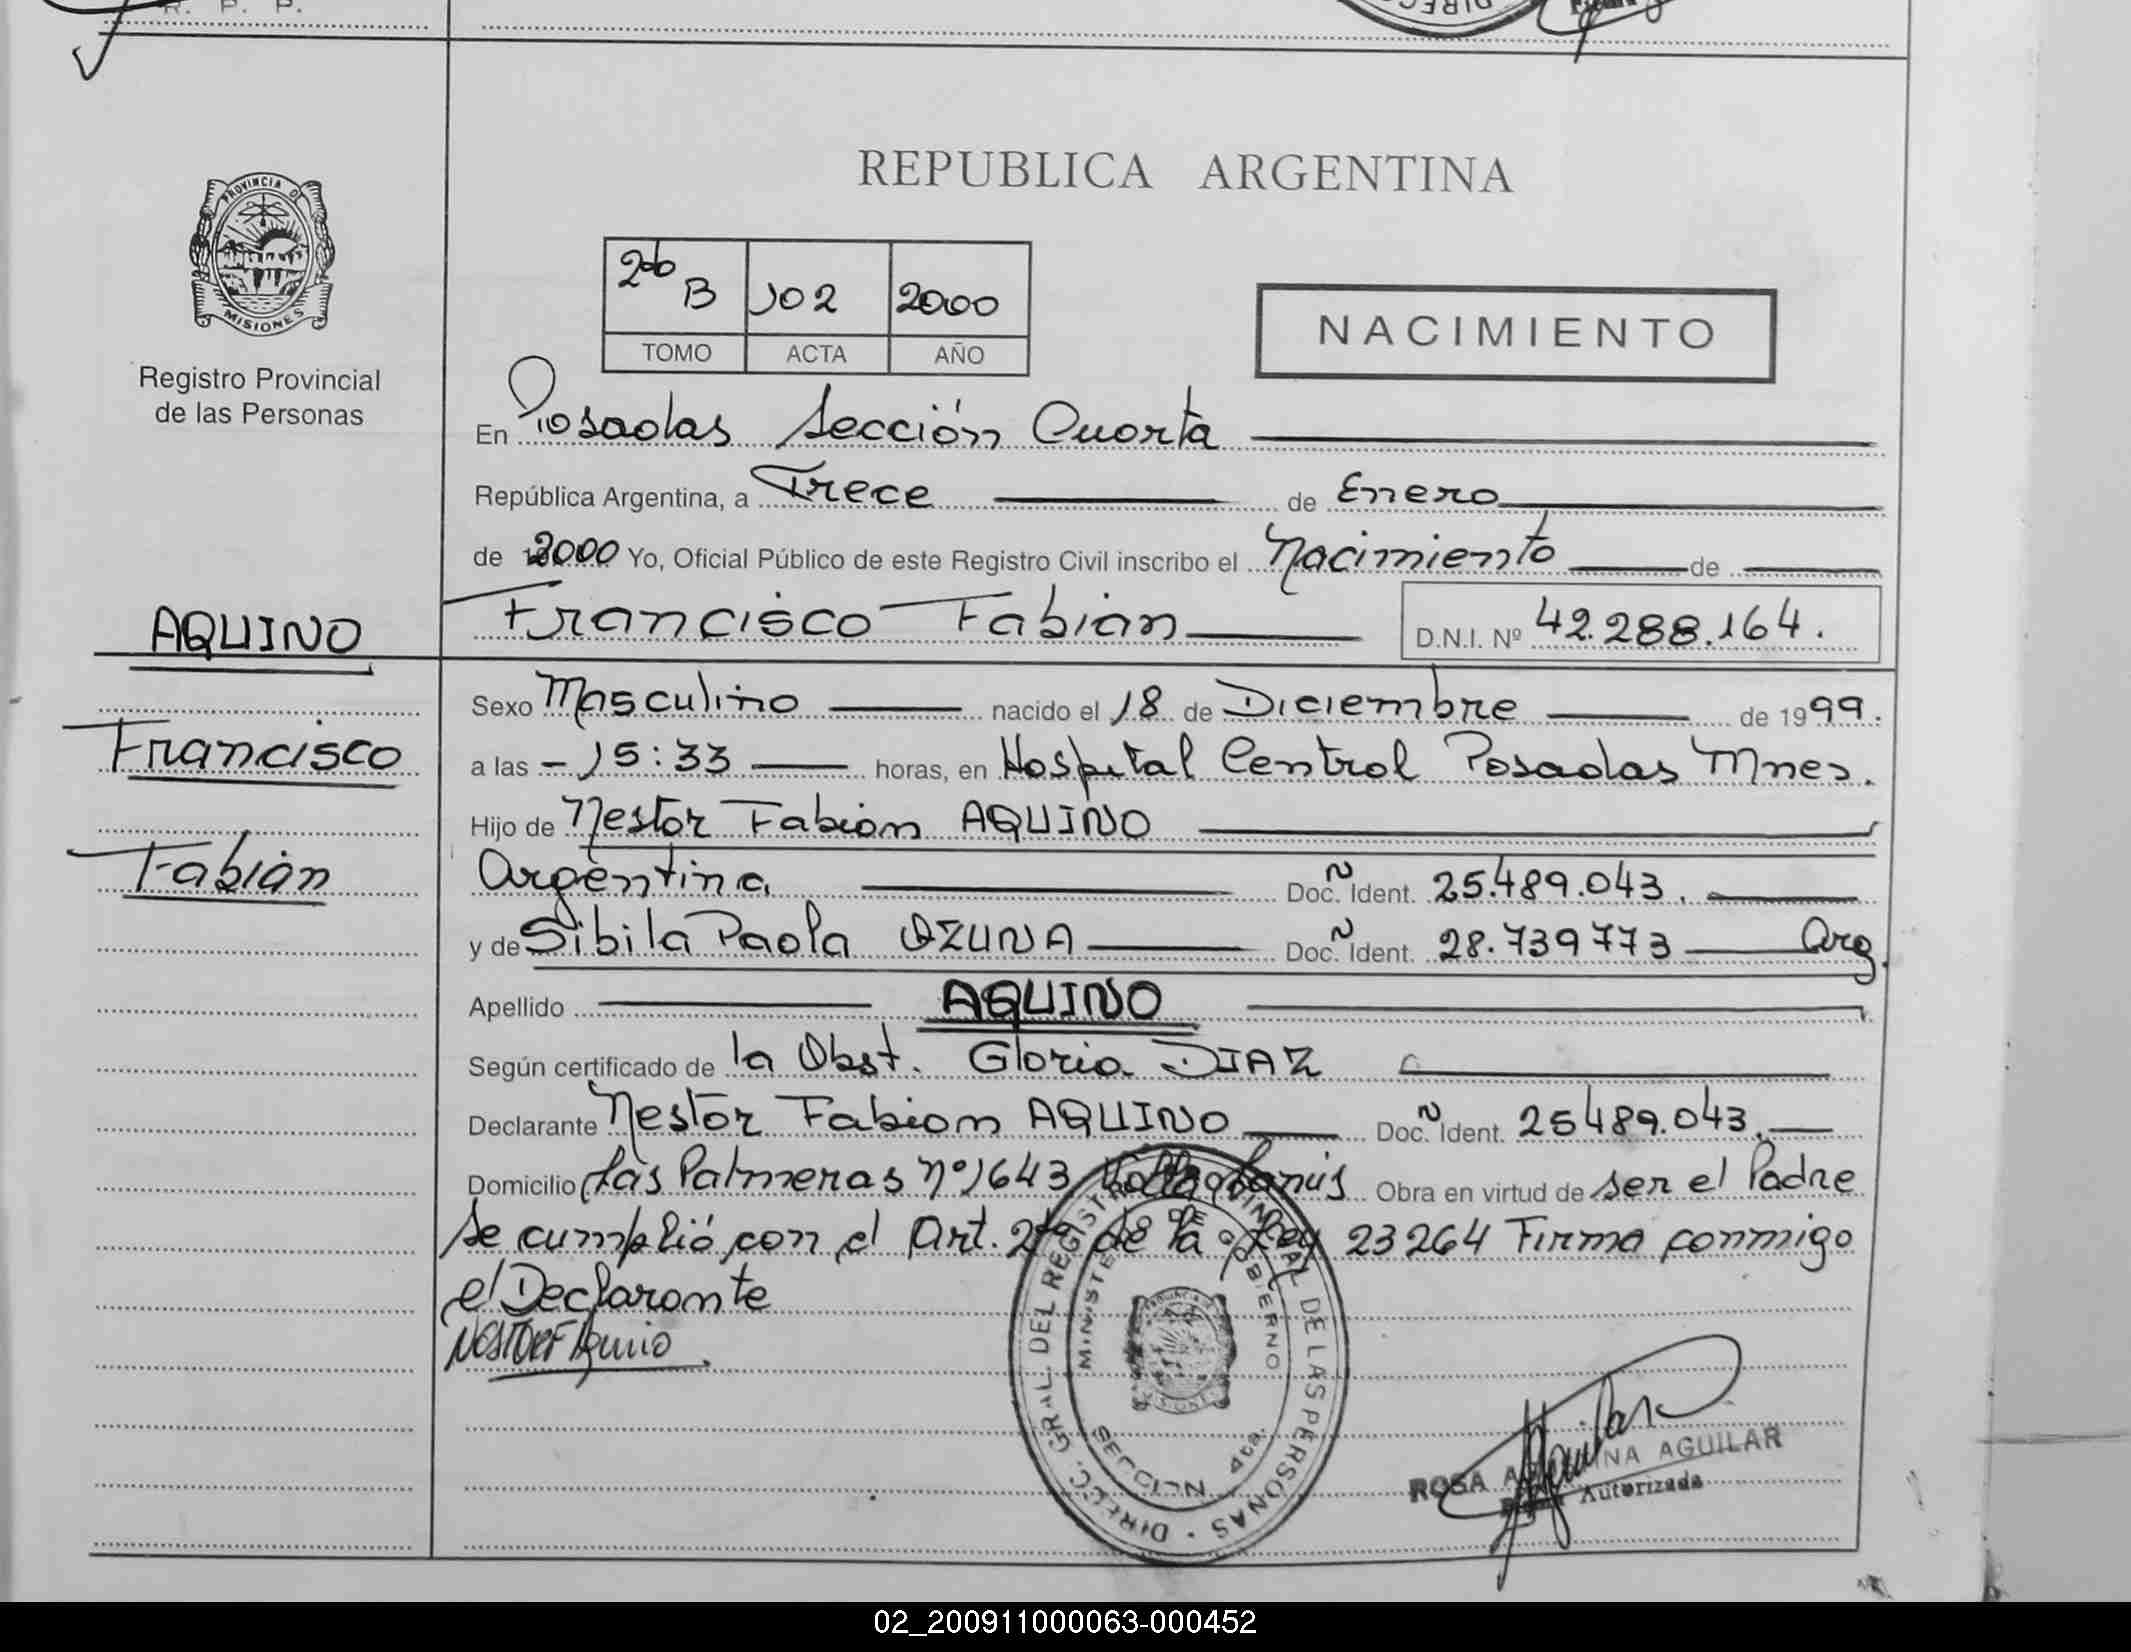 R. P. P.
REPUBLICA ARGENTINA
PROVINCIA DE
MISIONES
Registro Provincial
de las Personas
2do B 102 2000
TOMO ACTA AÑO
NACIMIENTO
En Posadas Sección Cuarta
República Argentina, a Trece de Enero
de 2000 Yo, Oficial Público de este Registro Civil inscribo el Nacimiento de
Francisco Fabián D.N.I. Nº 42.288.164.
AQUINO
Francisco
Fabián
Sexo Masculino nacido el 18 de Diciembre de 1999.
a las - 15:33 horas, en Hospital Central Posadas Mnes.
Hijo de Nestor Fabián AQUINO
Argentina Doc. Ñ Ident. 25.489.043.
y de Sibila Paola OZUNA Doc. Ñ Ident. 28.739773 Arg.
Apellido AQUINO
Según certificado de la Obst. Gloria DIAZ
Declarante Nestor Fabian AQUINO Doc. Ñ Ident. 25489.043.
Domicilio Las Palmeras nº 1643 Lanús Obra en virtud de ser el Padre
Se cumplió con el Art. 2do de la Ley 23264 Firma conmigo
el Declarante
NESTOR F Aquino
DIRECC. GRAL. DEL REGISTRO PROVINCIAL DE LAS PERSONAS
MINISTERIO DE GOBIERNO
SECCION 4ta.
Aguilar
ROSA AGUILAR
Firma Autorizada
02_200911000063-000452